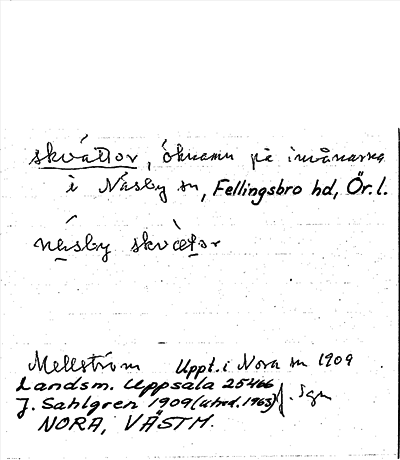 skvättor, öknamn på invånarna
i Näsby sn, Fellingsbro hd, Ör. l.
näsby skvætor
Mellström Uppt. i Nora sn 1909
Landsm. Uppsala 25466
J. Sahlgren 1909 (utred. 1963) J. Sgn
NORA, VÄSTM.